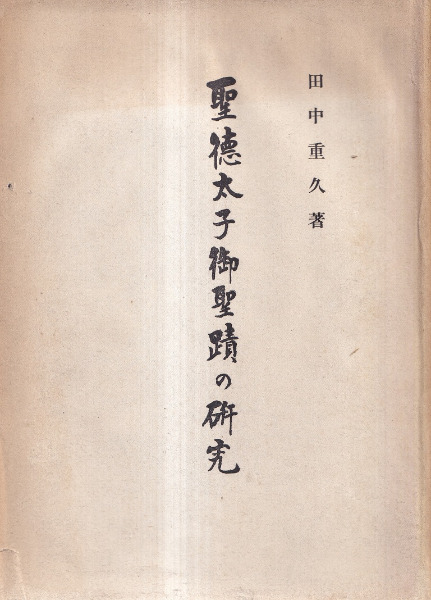 田中重久著
聖德太子御聖蹟の研究